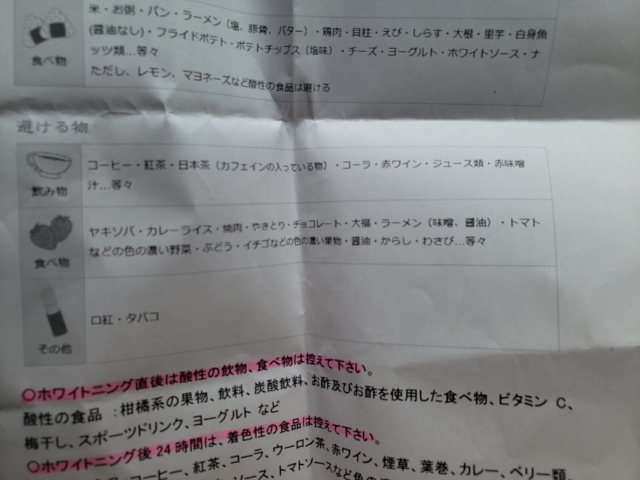 米・お粥・パン・ラーメン（塩、豚骨、バター）・鶏肉・貝柱・えび・しらす・大根・里芋・白身魚
(醤油なし)・フライドポテト・ポテトチップス（塩味）・チーズ・ヨーグルト・ホワイトソース・ナ
ッツ類…等々
ただし、レモン、マヨネーズなど酸性の食品は避ける
食べ物
避ける物
コーヒー・紅茶・日本茶（カフェインの入っている物）・コーラ・赤ワイン・ジュース類・赤味噌
汁…等々
飲み物
ヤキソバ・カレーライス・焼肉・やきとり・チョコレート・大福・ラーメン（味噌、醤油）・トマト
などの色の濃い野菜・ぶどう・イチゴなどの色の濃い果物・醤油・からし・わさび…等々
食べ物
口紅・タバコ
その他
○ホワイトニング直後は酸性の飲物、食べ物は控えて下さい。
酸性の食品 ：柑橘系の果物、飲料、炭酸飲料、お酢及びお酢を使用した食べ物、ビタミン C、
梅干し、スポーツドリンク、ヨーグルト など
○ホワイトニング後24時間は、着色性の食品は控えて下さい。
コーヒー、紅茶、コーラ、ウーロン茶、赤ワイン、煙草、葉巻、カレー、ベリー類、
ソース、トマトソースなど色の